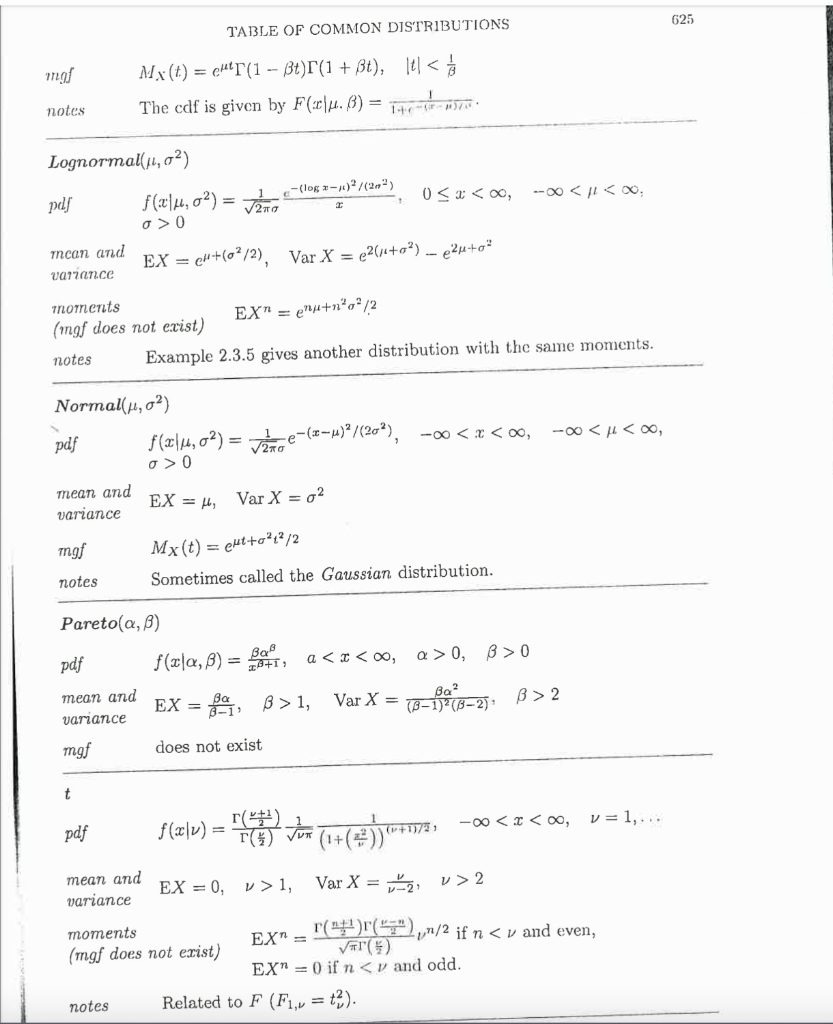 TABLE OF COMMON DISTRIBUTIONS 625
mgf M_X(t) = e^{μt}Γ(1 − βt)Γ(1 + βt), |t| < 1/β
notes The cdf is given by F(x|μ, β) = 1/(1+e^{−(x−μ)/β}).
Lognormal(μ, σ²)
pdf f(x|μ, σ²) = 1/(√(2π)σ) e^{−(log x−μ)²/(2σ²)}/x, 0 ≤ x < ∞, −∞ < μ < ∞,
σ > 0
mean and
variance EX = e^{μ+(σ²/2)}, Var X = e^{2(μ+σ²)} − e^{2μ+σ²}
moments
(mgf does not exist) EXⁿ = e^{nμ+n²σ²/2}
notes Example 2.3.5 gives another distribution with the same moments.
Normal(μ, σ²)
pdf f(x|μ, σ²) = 1/(√(2π)σ) e^{−(x−μ)²/(2σ²)}, −∞ < x < ∞, −∞ < μ < ∞,
σ > 0
mean and
variance EX = μ, Var X = σ²
mgf M_X(t) = e^{μt+σ²t²/2}
notes Sometimes called the Gaussian distribution.
Pareto(α, β)
pdf f(x|α, β) = βα^β/x^{β+1}, a < x < ∞, α > 0, β > 0
mean and
variance EX = βα/(β−1), β > 1, Var X = βα²/((β−1)²(β−2)), β > 2
mgf does not exist
t
pdf f(x|ν) = Γ((ν+1)/2)/Γ(ν/2) 1/√(νπ) 1/(1+(x²/ν))^{(ν+1)/2}, −∞ < x < ∞, ν = 1,...
mean and
variance EX = 0, ν > 1, Var X = ν/(ν−2), ν > 2
moments
(mgf does not exist) EXⁿ = Γ((n+1)/2)Γ((ν−n)/2)/(√πΓ(ν/2)) ν^{n/2} if n < ν and even,
EXⁿ = 0 if n < ν and odd.
notes Related to F (F_{1,ν} = t²_ν).